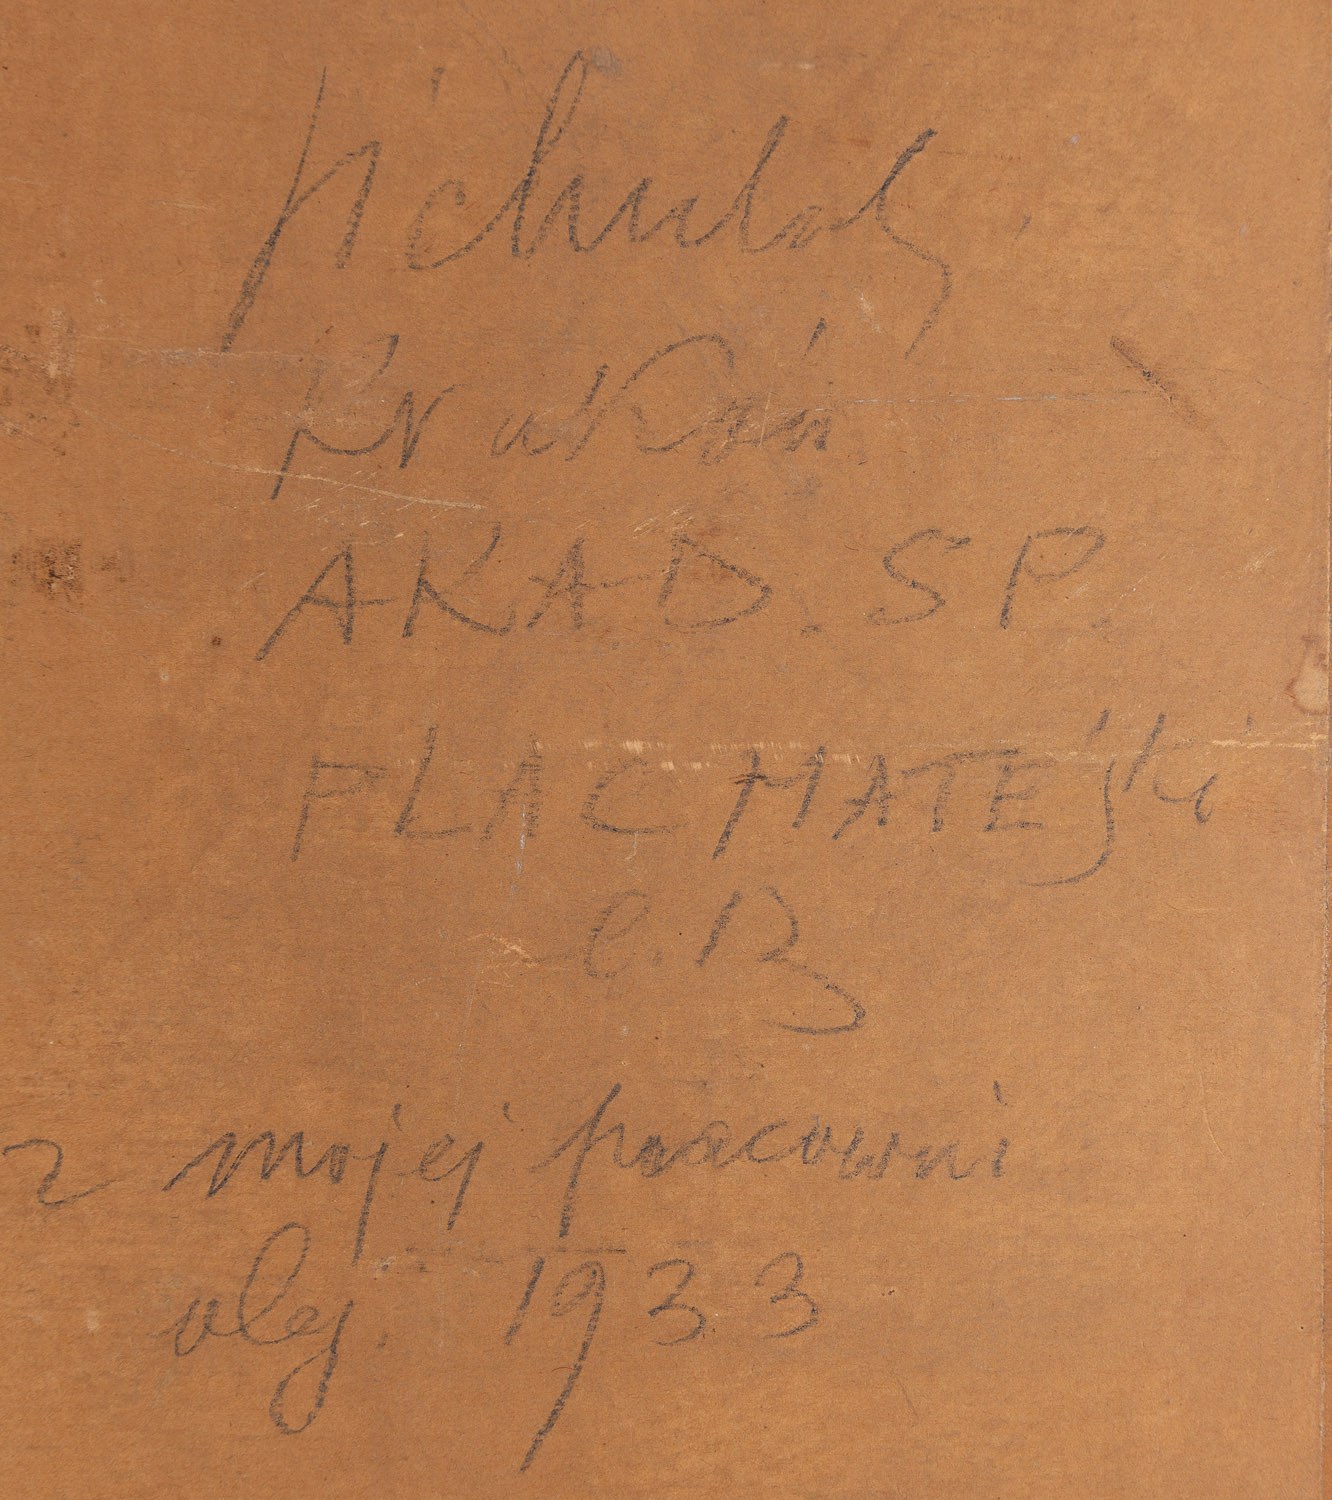 Kraków
AKAD. SP.
PLAC MATEjki
l. 13
z mojej pracowni
olej. 1933